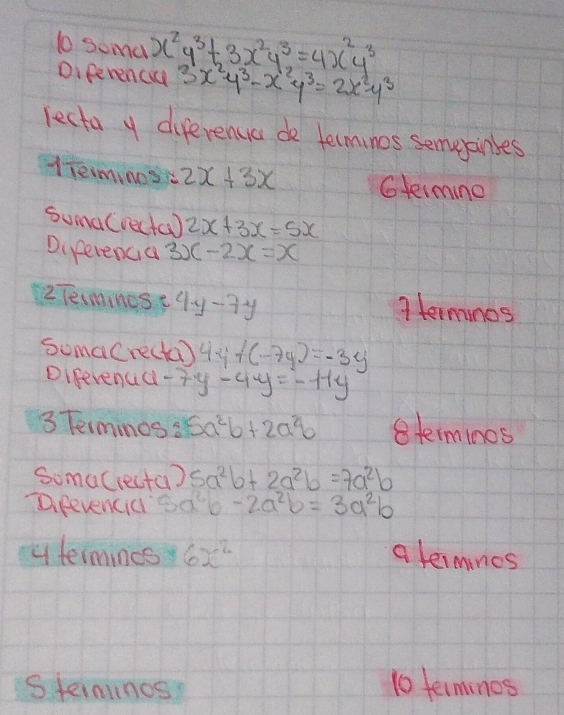 10 Suma x²y³+3x²y³=4x²y³
Diferencia 3x²y³-x²y³=2x²y³
recta y diferencia de terminos semejantes
1 Terminos: 2x+3x
6 termino
Suma(recta) 2x+3x=5x
Diferencia 3x-2x=x
2 Terminos: 4y-7y
7 terminos
Suma(recta) 4y+(-7y)=-3y
Diferencia -7y-4y=-11y
3 Terminos: 5a²b+2a²b
8 terminos
Suma(recta) 5a²b+2a²b=7a²b
Diferencia 5a²b-2a²b=3a²b
4 terminos 6x²
9 terminos
5 terminos
10 terminos